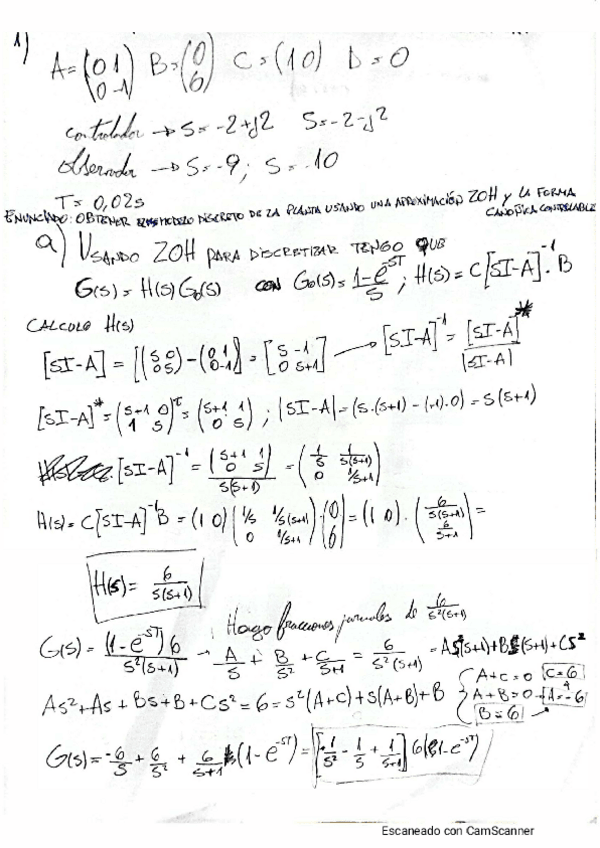 1)
A=(0 1 / 0 -1) B=(0 / 6) C=(1 0) D=0
controlador → S=-2+j2 S=-2-j2
Observador → S=-9; S=-10
T=0,02s
ENUNCIADO: OBTENER MODELO DISCRETO DE LA PLANTA USANDO UNA APROXIMACIÓN ZOH y LA FORMA CANÓNICA CONTROLABLE
a) USANDO ZOH PARA DISCRETIZAR TENGO QUE
G(s)=H(s)G₀(s) CON G₀(s)=(1-e^-ST)/S; H(s)=C[SI-A]^-1·B
CALCULO H(s)
[SI-A]=[(S 0 / 0 S)-(0 1 / 0 -1)]=[S -1 / 0 S+1] → [SI-A]^-1=[SI-A]^*/|SI-A|
[SI-A]^*=(S+1 0 / 1 S)^t=(S+1 1 / 0 S); |SI-A|=(S.(S+1)-(-1).0)=S(S+1)
[SI-A]^-1=(S+1 1 / 0 S)/S(S+1)=(1/S 1/S(S+1) / 0 1/S+1)
H(s)=C[SI-A]^-1B=(1 0)(1/S 1/S(S+1) / 0 1/S+1)·(0 / 6)=(1 0)·(6/S(S+1) / 6/S+1)=
H(s)=6/S(S+1)
Hago fracciones parciales de 6/S²(S+1)
G(s)=(1-e^-ST)6/S²(S+1) → A/S+B/S²+C/S+1=6/S²(S+1)=AS(S+1)+B(S+1)+CS²
AS²+AS+BS+B+CS²=6=S²(A+C)+S(A+B)+B { A+C=0 C=6
A+B=0 → A=-6
B=6
G(s)=-6/S+6/S²+6/S+1(1-e^-ST)=[1/S²-1/S+1/S+1]6(1-e^-ST)
Escaneado con CamScanner